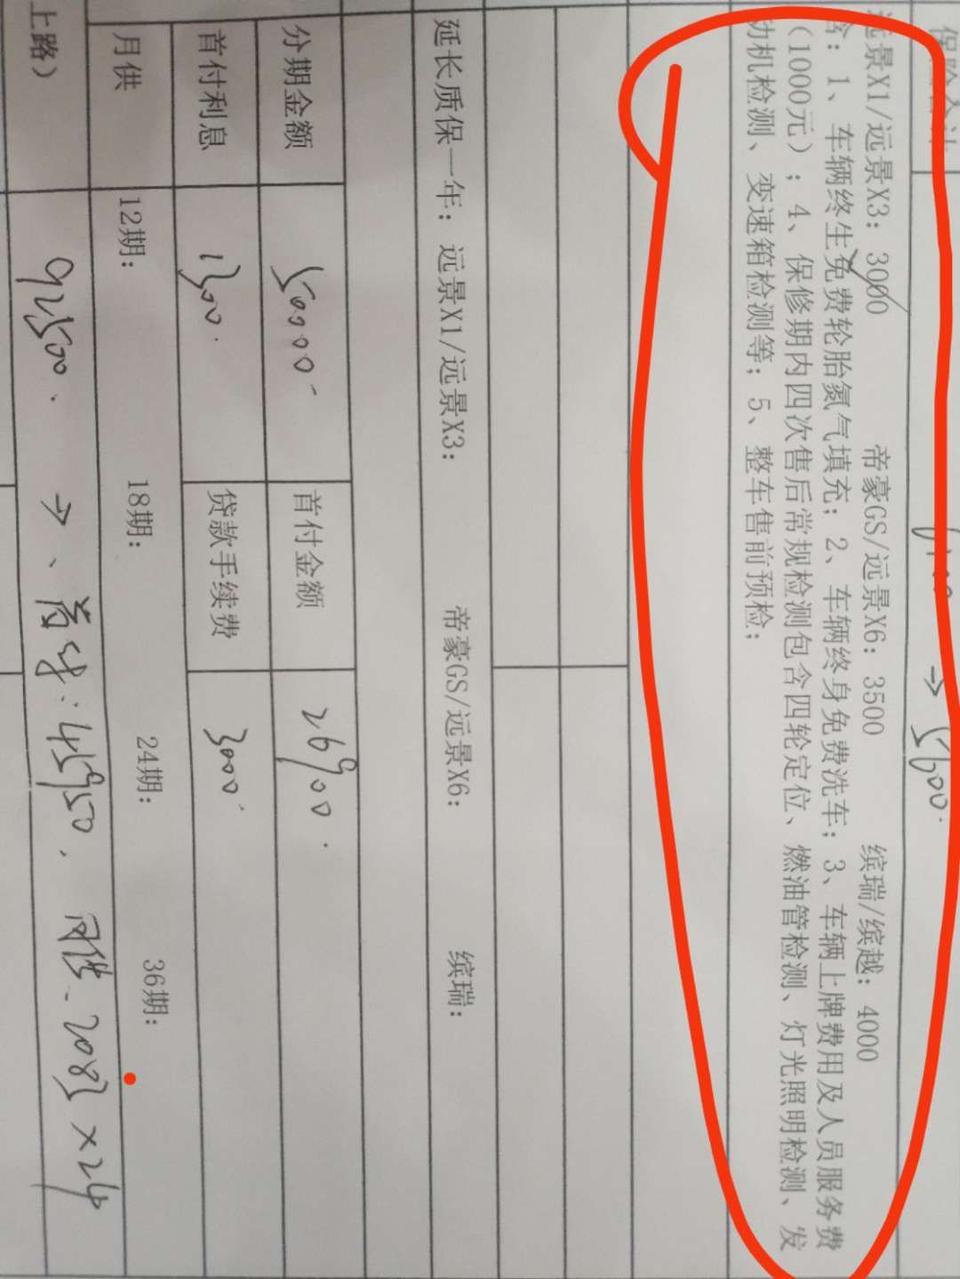 保险合计
→ 5600.
远景X1/远景X3: 3000 帝豪GS/远景X6: 3500 缤瑞/缤越: 4000
含: 1、车辆终生免费轮胎氮气填充; 2、车辆终身免费洗车; 3、车辆上牌费用及人员服务费
(1000元); 4、保修期内四次售后常规检测包含四轮定位、燃油管检测、灯光照明检测、发
动机检测、变速箱检测等; 5、整车售前预检;
延长质保一年: 远景X1/远景X3: 帝豪GS/远景X6: 缤瑞:
分期金额 50000- 首付金额 26900.
首付利息 1300. 贷款手续费 3000.
月供 12期: 18期: 24期: 36期:
上路) 92500. → 首付: 45950. 月供. 2083×24